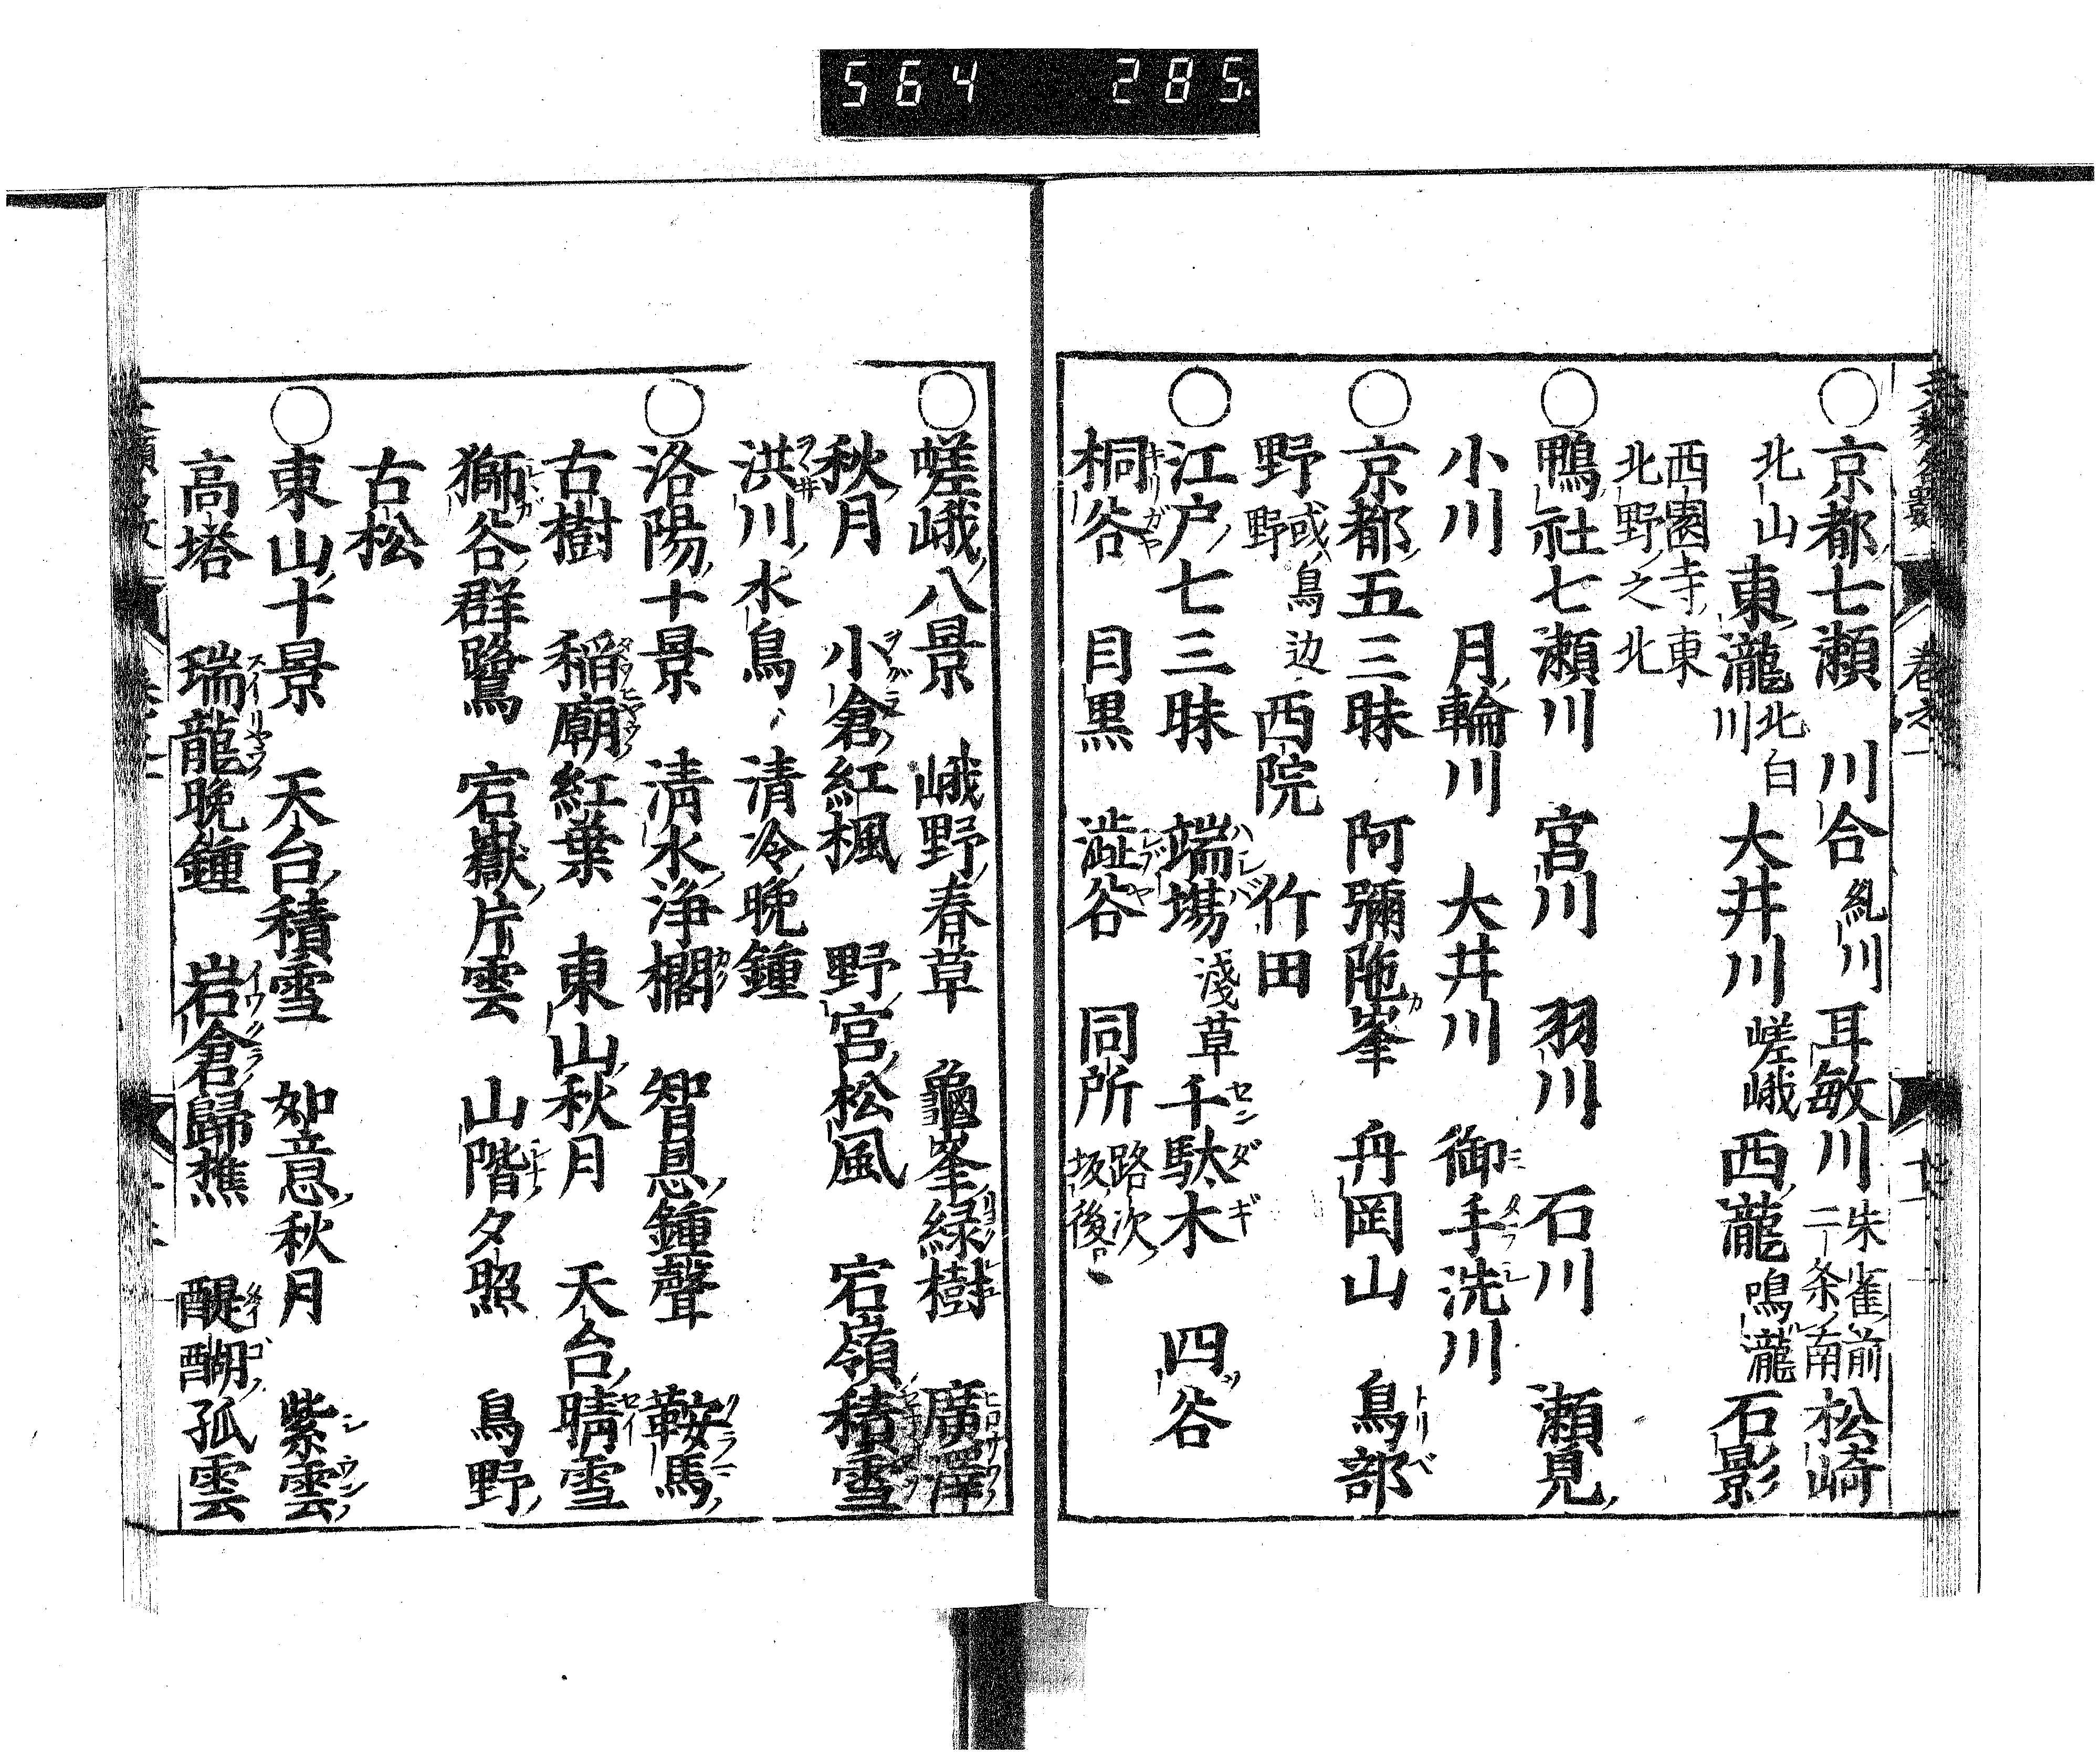 564 285
○京都七瀬 川合 糺川 耳敏川 朱雀前二条南 松崎
北山 東瀧川 北白 大井川 嵯峨 西瀧 鳴瀧 石影
西園寺東北野之北
○鴨社七瀬川 宮川 羽川 石川 瀬見
小川 月輪川 大井川 御手洗川
○京都五三昧 阿彌陁峯 舟岡山 鳥部
野 或鳥辺野 西院 竹田
○江戸七三昧 端場 淺草 千駄木 四谷
桐谷 目黒 澁谷 同所 路次坂後口
○嵯峨八景 峨野春草 龜峯緑樹 廣澤
秋月 小倉紅楓 野宮松風 宕嶺積雪
洪川水鳥 清冷晩鐘
○洛陽十景 清水浄櫊 智恩鐘聲 鞍馬
古樹 稲廟紅葉 東山秋月 天台晴雪
獅谷群鷺 宕嶽片雲 山階夕照 鳥野
古松
○東山十景 天台積雪 如意秋月 紫雲
高塔 瑞龍晩鐘 岩倉歸樵 醍醐孤雲